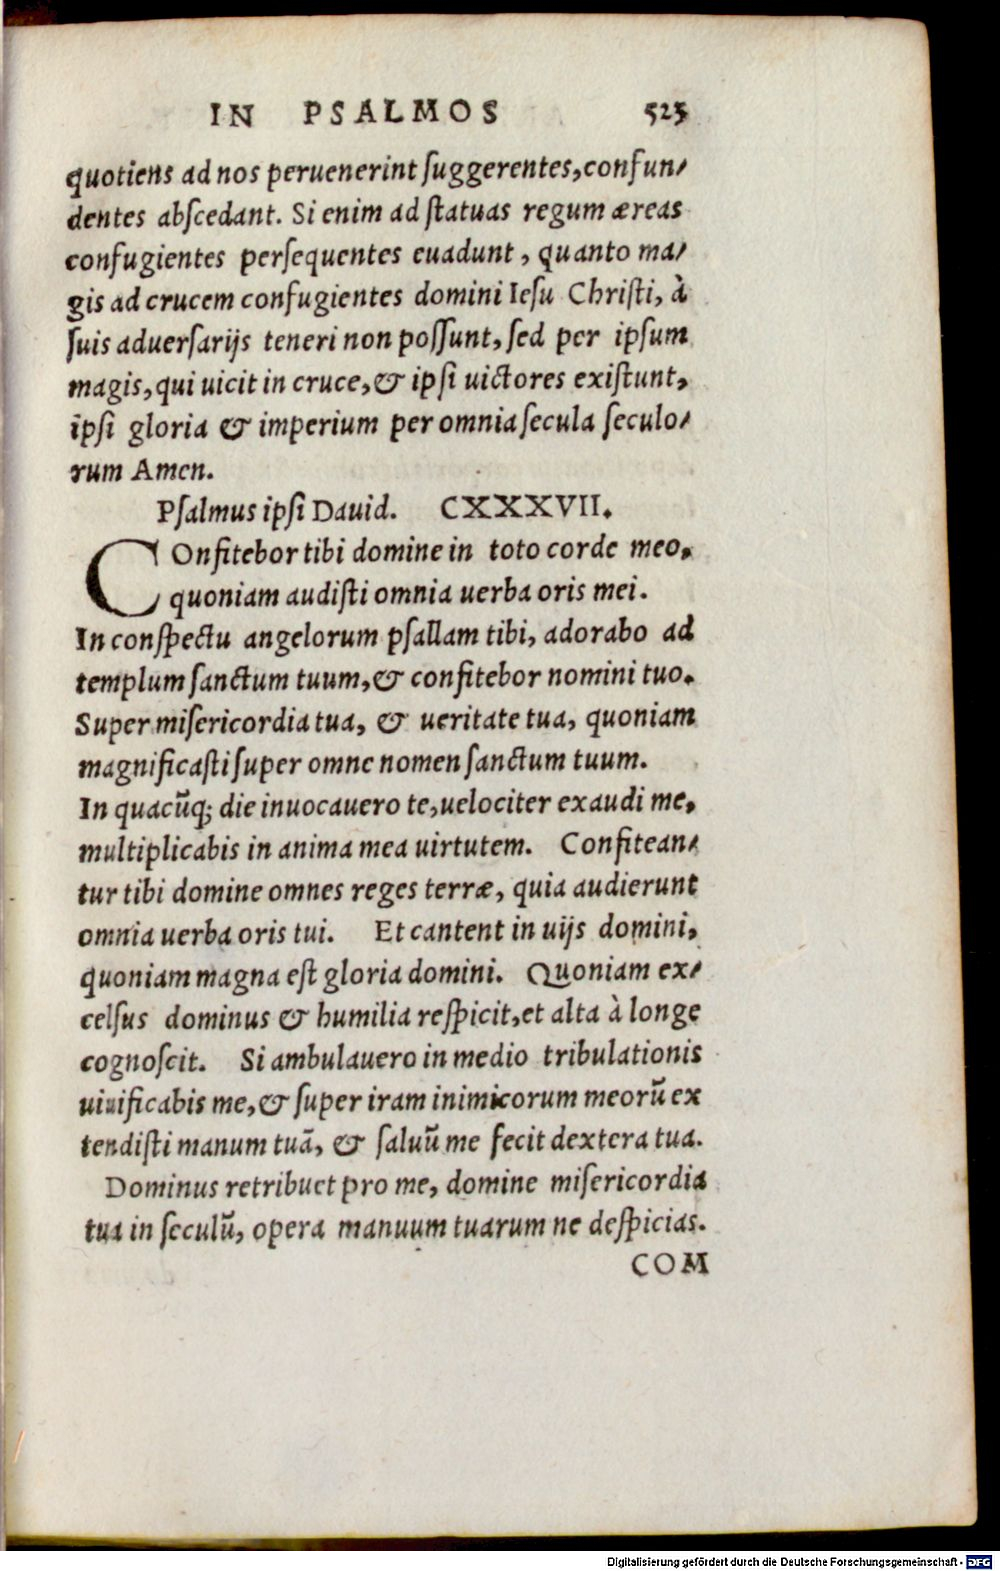 IN PSALMOS 525
quotiens ad nos peruenerint ſuggerentes, confun⸗
dentes abſcedant. Si enim ad ſtatuas regum æreas
confugientes perſequentes euadunt, quanto ma⸗
gis ad crucem confugientes domini Ieſu Chriſti, à
ſuis aduerſarijs teneri non poſſunt, ſed per ipſum
magis, qui uicit in cruce, & ipſi uictores exiſtunt,
ipſi gloria & imperium per omnia ſecula ſeculo⸗
rum Amen.
Pſalmus ipſi Dauid. CXXXVII.
COnfitebor tibi domine in toto corde meo,
quoniam audiſti omnia uerba oris mei.
In conſpectu angelorum pſallam tibi, adorabo ad
templum ſanctum tuum, & confitebor nomini tuo.
Super miſericordia tua, & ueritate tua, quoniam
magnificaſti ſuper omne nomen ſanctum tuum.
In quacūq; die inuocauero te, uelociter exaudi me,
multiplicabis in anima mea uirtutem. Confitean⸗
tur tibi domine omnes reges terræ, quia audierunt
omnia uerba oris tui. Et cantent in uijs domini,
quoniam magna eſt gloria domini. Quoniam ex⸗
celſus dominus & humilia reſpicit, et alta à longe
cognoſcit. Si ambulauero in medio tribulationis
uiuificabis me, & ſuper iram inimicorum meorū ex
tendiſti manum tuā, & ſaluū me fecit dextera tua.
Dominus retribuet pro me, domine miſericordia
tua in ſeculū, opera manuum tuarum ne deſpicias.
COM
Digitalisierung gefördert durch die Deutsche Forschungsgemeinschaft - DFG